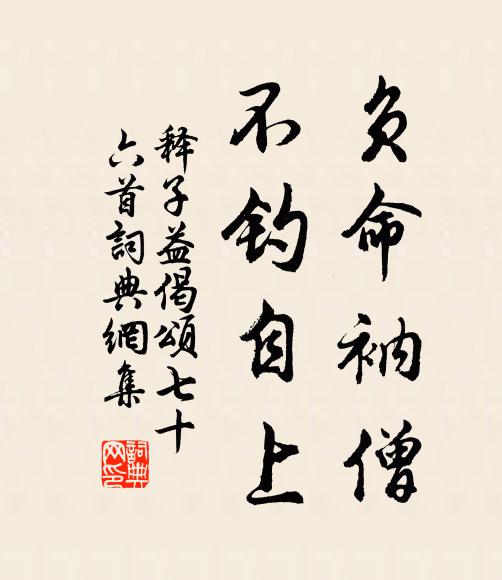 负命衲僧
不钓自上
释子益偈颂七十
六首詞典網集
詞典
网印